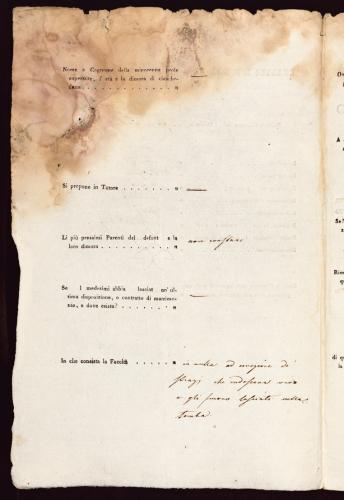 Nome e Cognome della minorenne prole
superstite, l'età e la dimora di ciasche-
duno . . . . . . . . . . . . . . . . »
Si propone in Tutore . . . . . . . . »
Li più prossimi Parenti del defunt e la
loro dimora . . . . . . . . . . . . »
non constano
Se i medesimi abbia lasciat un'ul-
tima disposizione, o contratto di matrimo-
nio, e dove esista? . . . . . . . . . »
In che consista la Facoltà . . . . . . »
in nulla ad eccezione di
Strazj che indossava vivo
e gli furono lasciati nella
tomba.